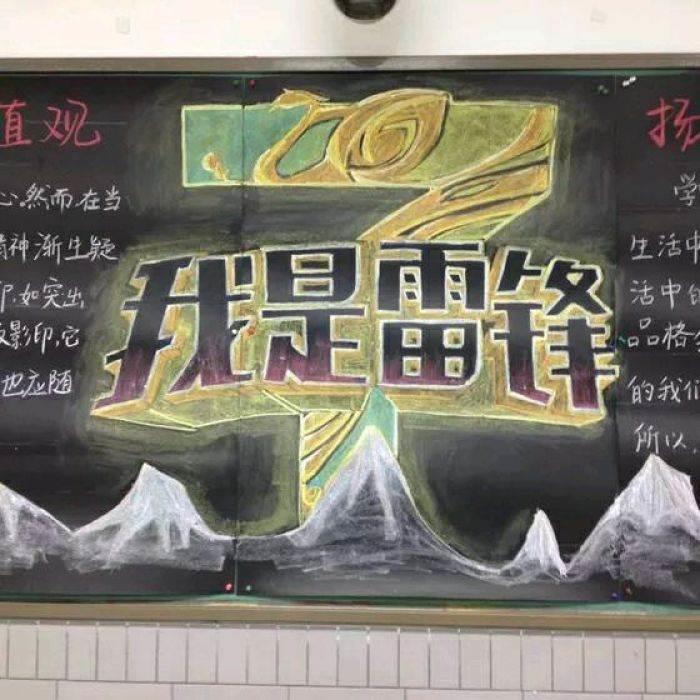 值观
心.然而,在当
精神渐生疑
印,如突出
版影印,它
也应随
我是雷锋
扬
学
生活中
活中的
品格
的我们
所以,